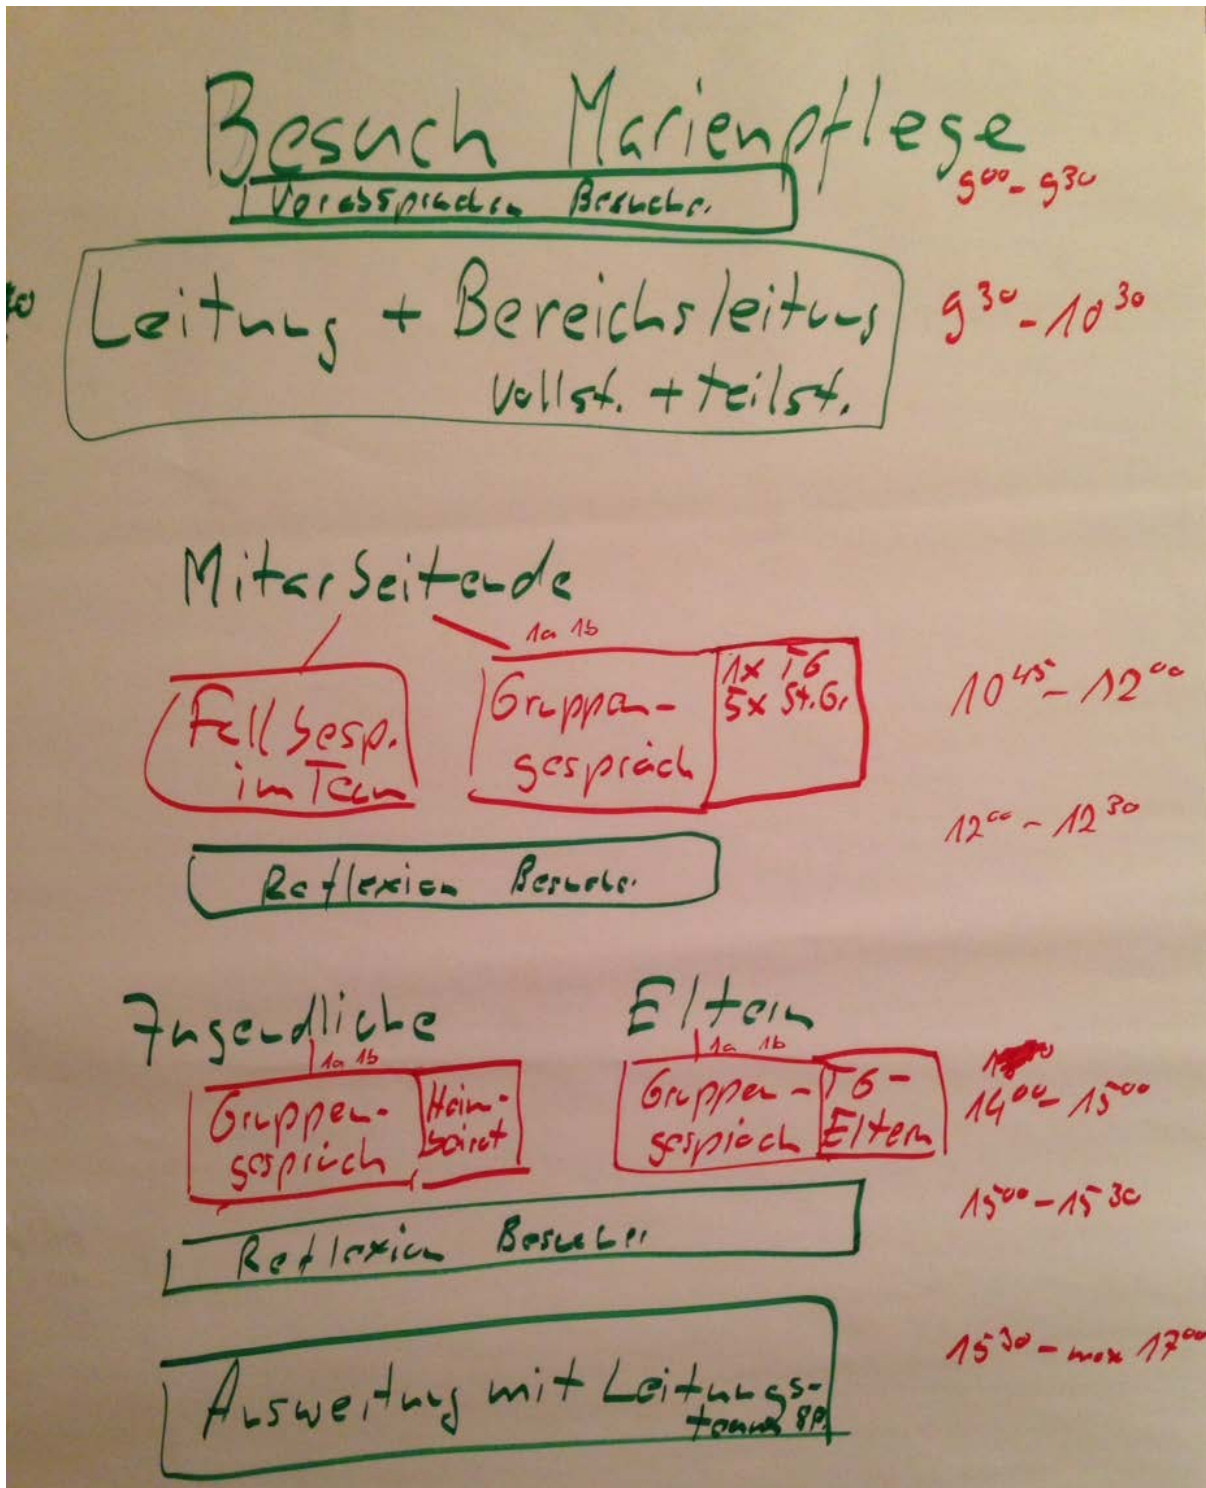 Besuch Marienpflege
Vorabsprachen Besucher
9⁰⁰ - 9³⁰
Leitung + Bereichsleitung
vollst. + teilst.
9³⁰ - 10³⁰
Mitarbeitende
1a 1b
Fallbesp.
im Team
Gruppen-
gespräch
1x TG
5x St.G.
10⁴⁵ - 12⁰⁰
Reflexion Besucher
12⁰⁰ - 12³⁰
Jugendliche
1a 1b
Gruppen-
gespräch
Heim-
beirat
Eltern
1a 1b
Gruppen-
gespräch
TG-
Eltern
14⁰⁰ - 15⁰⁰
Reflexion Besucher
15⁰⁰ - 15³⁰
Auswertung mit Leitungs-
team 8P.
15³⁰ - max 17⁰⁰